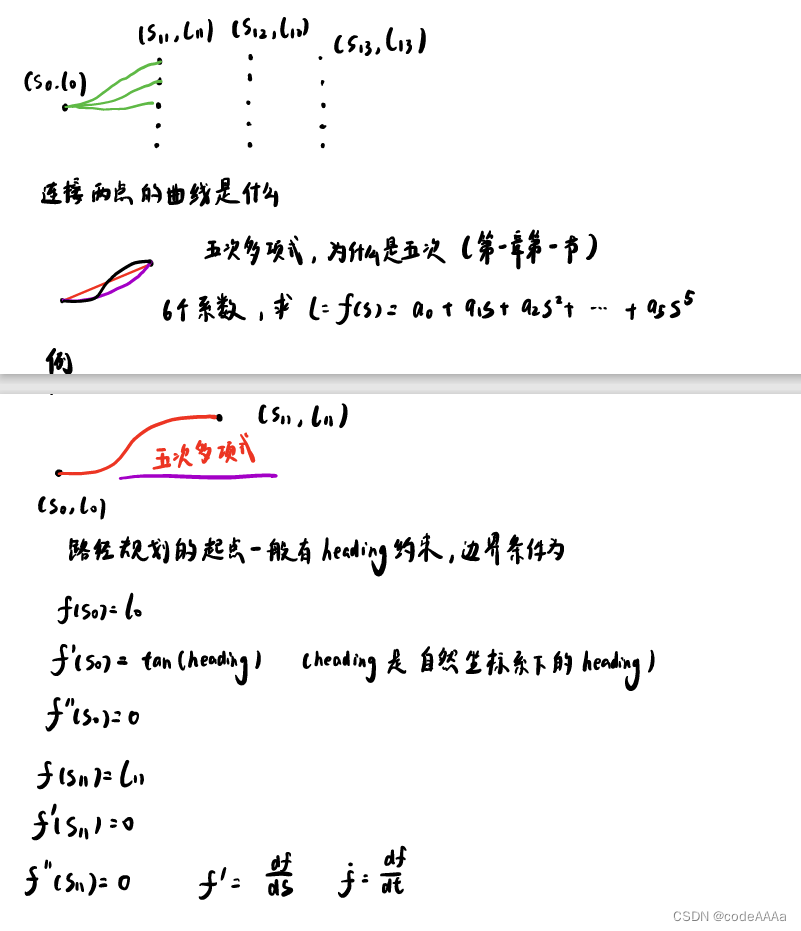 (s₁₁,l₁₁) (s₁₂,l₁₂) (s₁₃,l₁₃)
(s₀.l₀)
连接两点的曲线是什么
五次多项式,为什么是五次(第一章第一节)
6个系数,求 l=f(s)= a₀ + a₁s + a₂s² + ⋯ + a₅s⁵
例
(s₁₁,l₁₁)
五次多项式
(s₀,l₀)
路径规划的起点一般有heading约束,边界条件为
f(s₀)=l₀
f'(s₀)= tan(heading) (heading是自然坐标系下的heading)
f''(s₀)=0
f(s₁₁)=l₁₁
f'(s₁₁)=0
f''(s₁₁)=0 f'= df/ds ḟ= df/dt
CSDN @codeAAAa